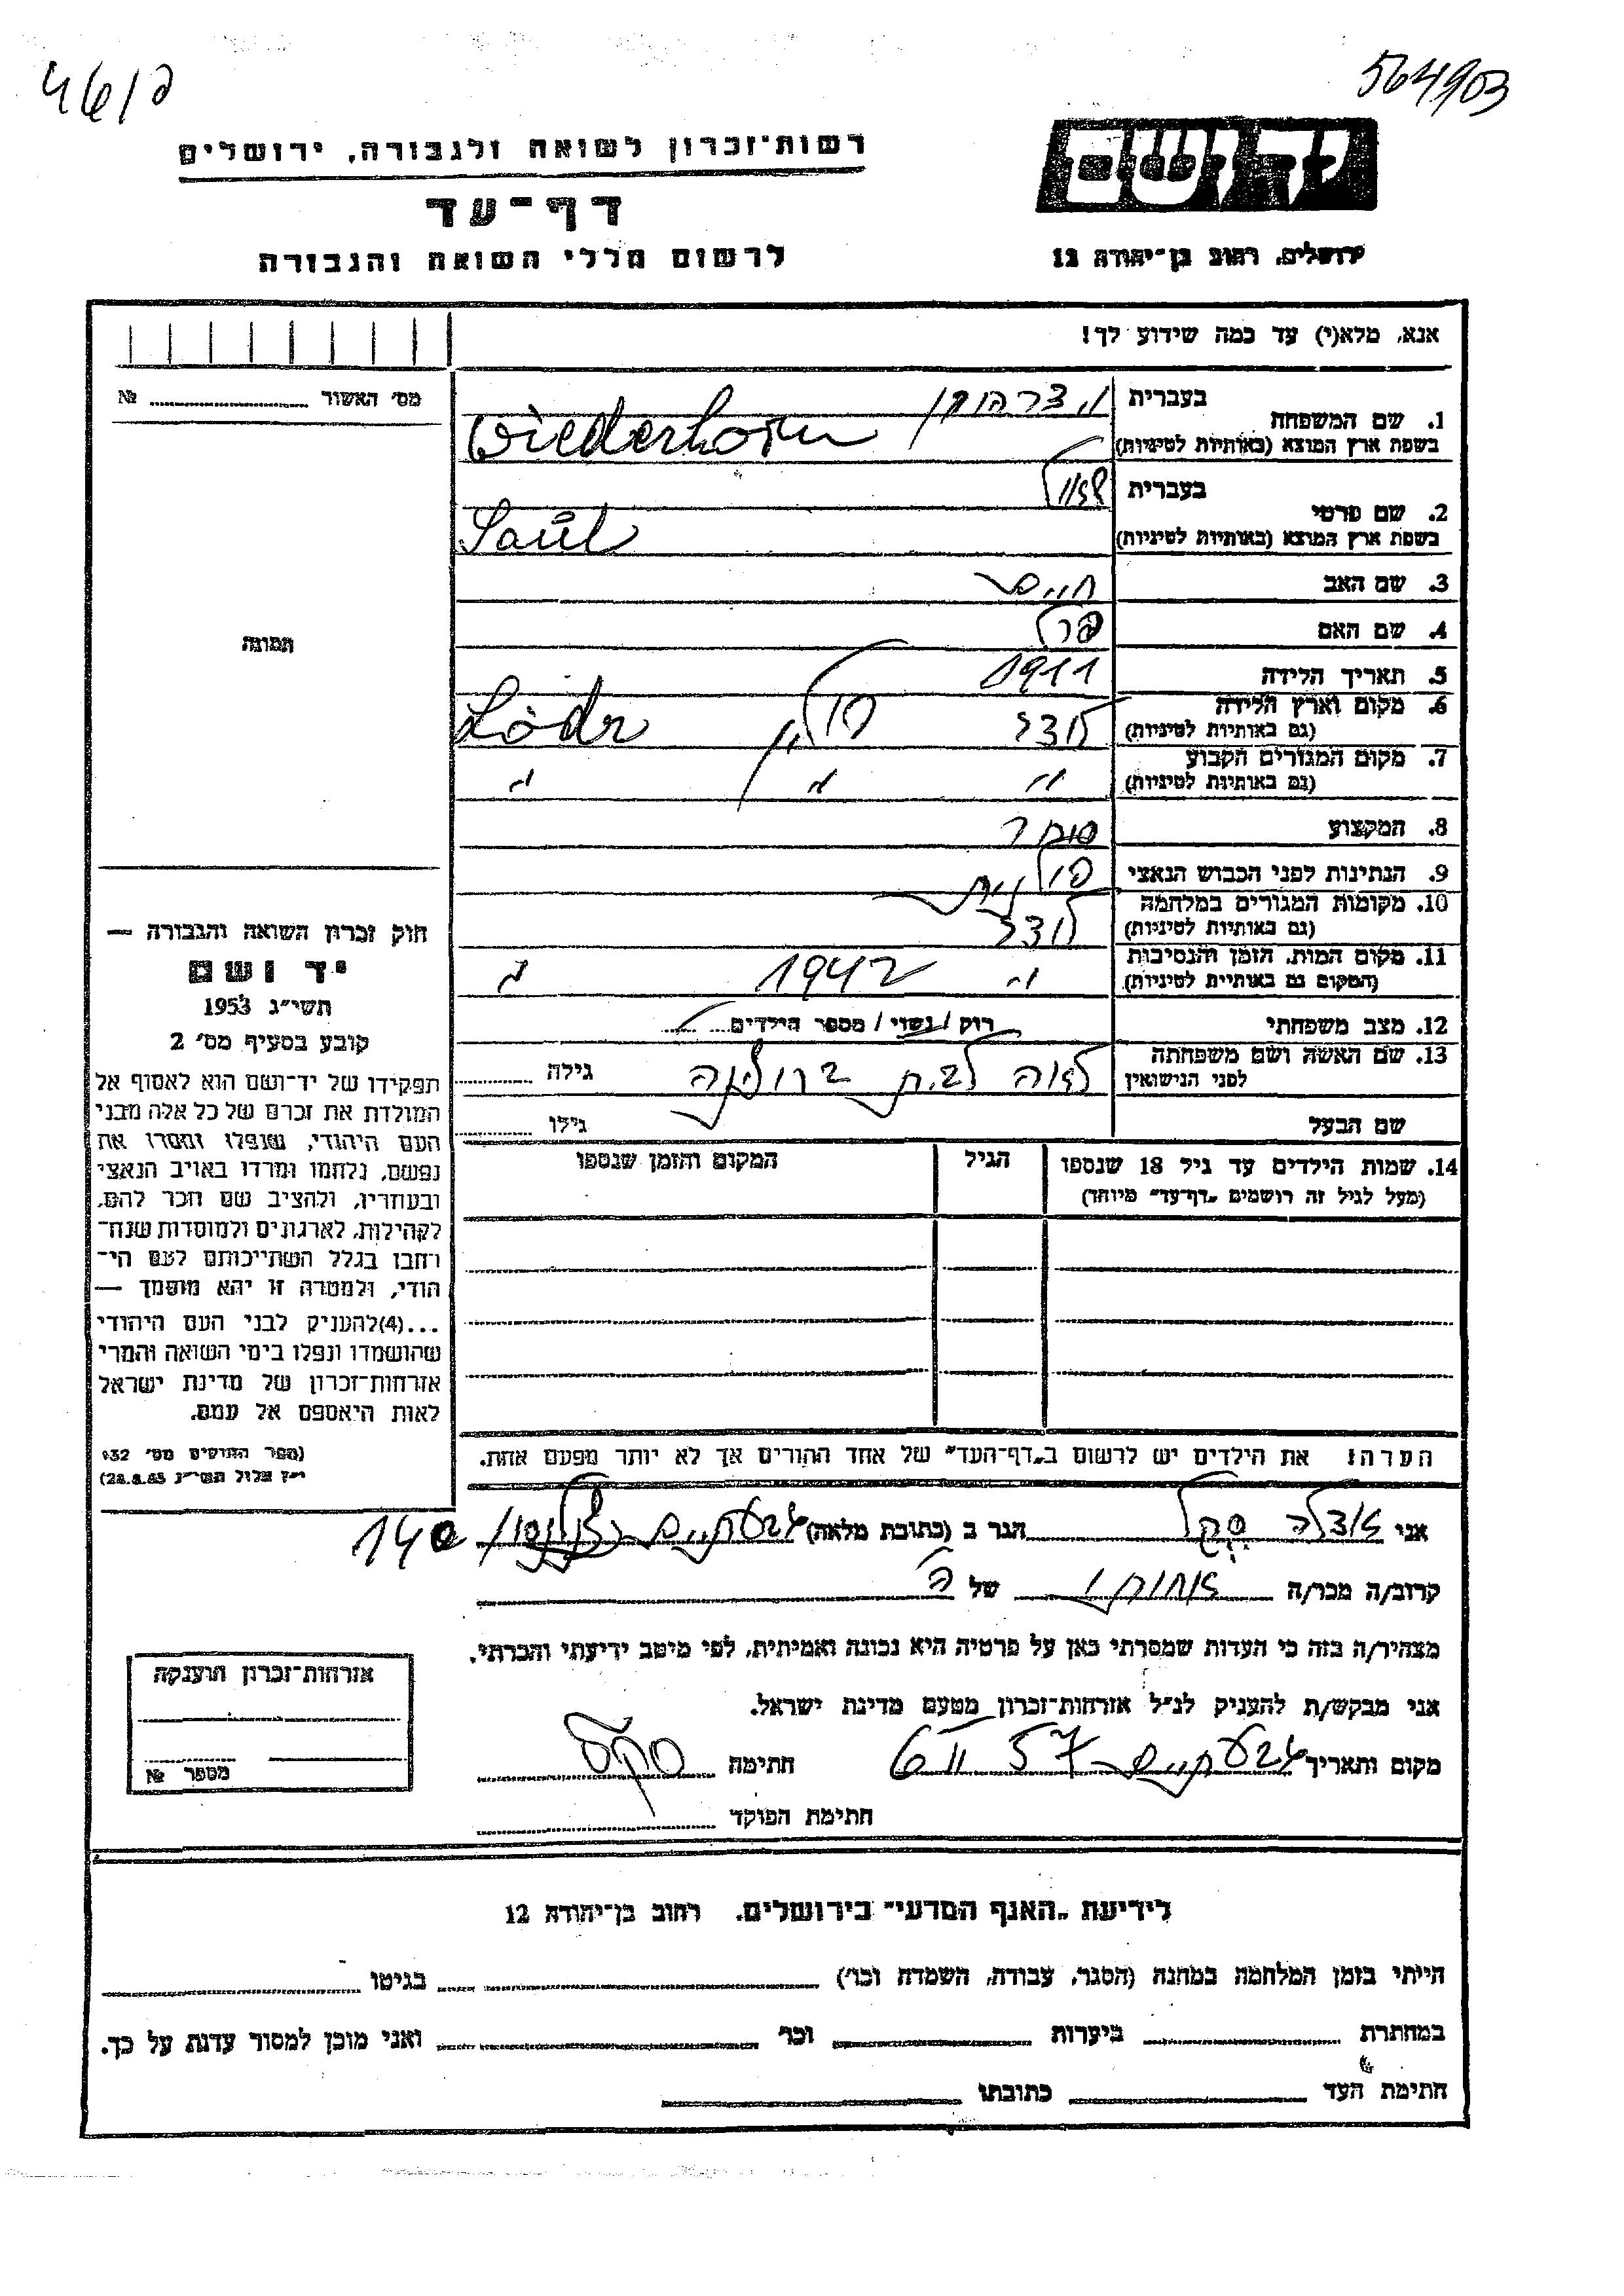 564903
רשות־זכרון לשואה ולגבורה, ירושלים
דף־עד
לרשום חללי השואה והגבורה
יד ושם
ירושלים, רחוב בן־יהודה 12
אנא, מלא(י) עד כמה שידוע לך!
מס׳ האשור № 
1. שם המשפחה
בעברית וידרהורן
בשפת ארץ המוצא (באותיות לטיניות) Wiederhorn
2. שם פרטי
בעברית שאול
בשפת ארץ המוצא (באותיות לטיניות) Saul
3. שם האב חיים
4. שם האם פרל
5. תאריך הלידה 1911
6. מקום וארץ הלידה (גם באותיות לטיניות) לודז׳ פולין Łódz
7. מקום המגורים הקבוע (גם באותיות לטיניות) " " "
8. המקצוע סוחר
9. הנתינות לפני הכבוש הנאצי פולנית
10. מקומות המגורים במלחמה (גם באותיות לטיניות) לודז׳
11. מקום המות, הזמן והנסיבות (המקום גם באותיות לטיניות) " 1942 "
12. מצב משפחתי רווק / נשוי / מספר הילדים
13. שם האשה ושם משפחתה לפני הנישואין לאה לבית גילה
שם הבעל גילו
14. שמות הילדים עד גיל 18 שנספו (מעל לגיל זה רושמים „דף־עד״ מיוחד)
הגיל
המקום והזמן שנספו
הערה: את הילדים יש לרשום ב„דף־העד״ של אחד ההורים אך לא יותר מפעם אחת.
תמונה
חוק זכרון השואה והגבורה —
יד ושם
תשי״ג 1953
קובע בסעיף מס׳ 2
תפקידו של יד־ושם הוא לאסוף אל
המולדת את זכרם של כל אלה מבני
העם היהודי, שנפלו ומסרו את
נפשם, נלחמו ומרדו באויב הנאצי
ובעוזריו, ולהציב שם וזכר להם,
לקהילות, לארגונים ולמוסדות שנח־
רבו בגלל השתייכותם לעם הי־
הודי, ולמטרה זו יהא מוסמך —
...(4)להעניק לבני העם היהודי
שהושמדו ונפלו בימי השואה והמרי
אזרחות־זכרון של מדינת ישראל
לאות היאספם אל עמם.
(ספר החוקים מס׳ 132
י״ז אלול תשי״ג 28.8.53)
אני אדלה הגר ב (כתובת מלאה) גבעתיים 140
קרוב/ה מכר/ה אחותו של ה
מצהיר/ה בזה כי העדות שמסרתי כאן על פרטיה היא נכונה ואמיתית, לפי מיטב ידיעתי והכרתי.
אני מבקש/ת להעניק לנ״ל אזרחות־זכרון מטעם מדינת ישראל.
מקום ותאריך גבעתיים 6 II 57 חתימה
חתימת הפוקד
אזרחות־זכרון הוענקה
מספר №
לידיעת „האגף המדעי״ בירושלים, רחוב בן־יהודה 12
הייתי בזמן המלחמה במחנה (הסגר, עבודה, השמדה וכו׳) בגיטו
במחתרת ביערות וכו׳ ואני מוכן למסור עדות על כך.
חתימת העד כתובתו